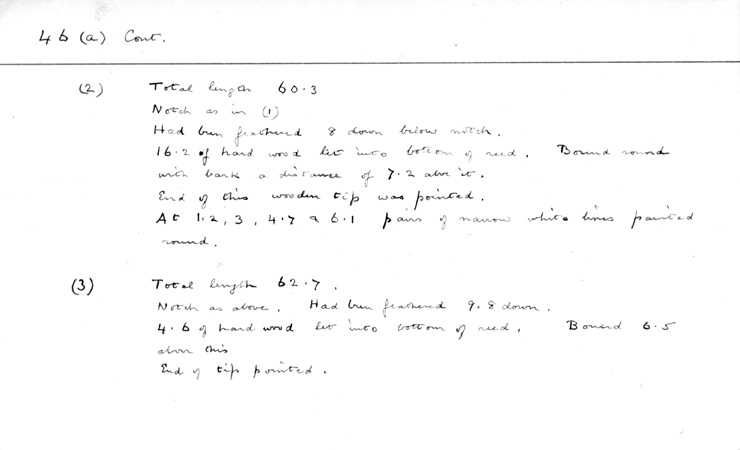 46 (a) Cont.
(2) Total length 60.3
Notch as in (1)
Had been feathered 8 down below notch.
16.2 of hard wood let into bottom of reed. Bound round
with bark a distance of 7.2 above it.
End of this wooden tip was pointed.
At 1.2, 3, 4.7 & 6.1 pairs of narrow white lines painted
round.
(3) Total length 62.7.
Notch as above. Had been feathered 9.8 down.
4.6 of hard wood let into bottom of reed. Bound 6.5
above this
End of tip pointed.